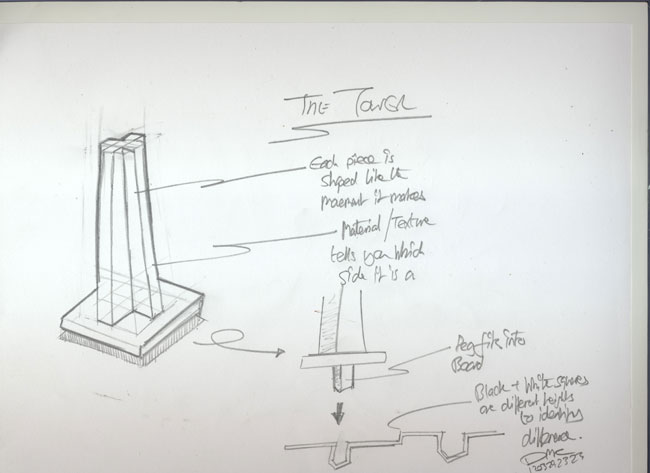 THE TOWER
Each piece is
shaped like the
movement it makes
Material/Texture
tells you which
side it is a
Peg fits into
Board
Black + White squares
are different heights
to identify
difference.